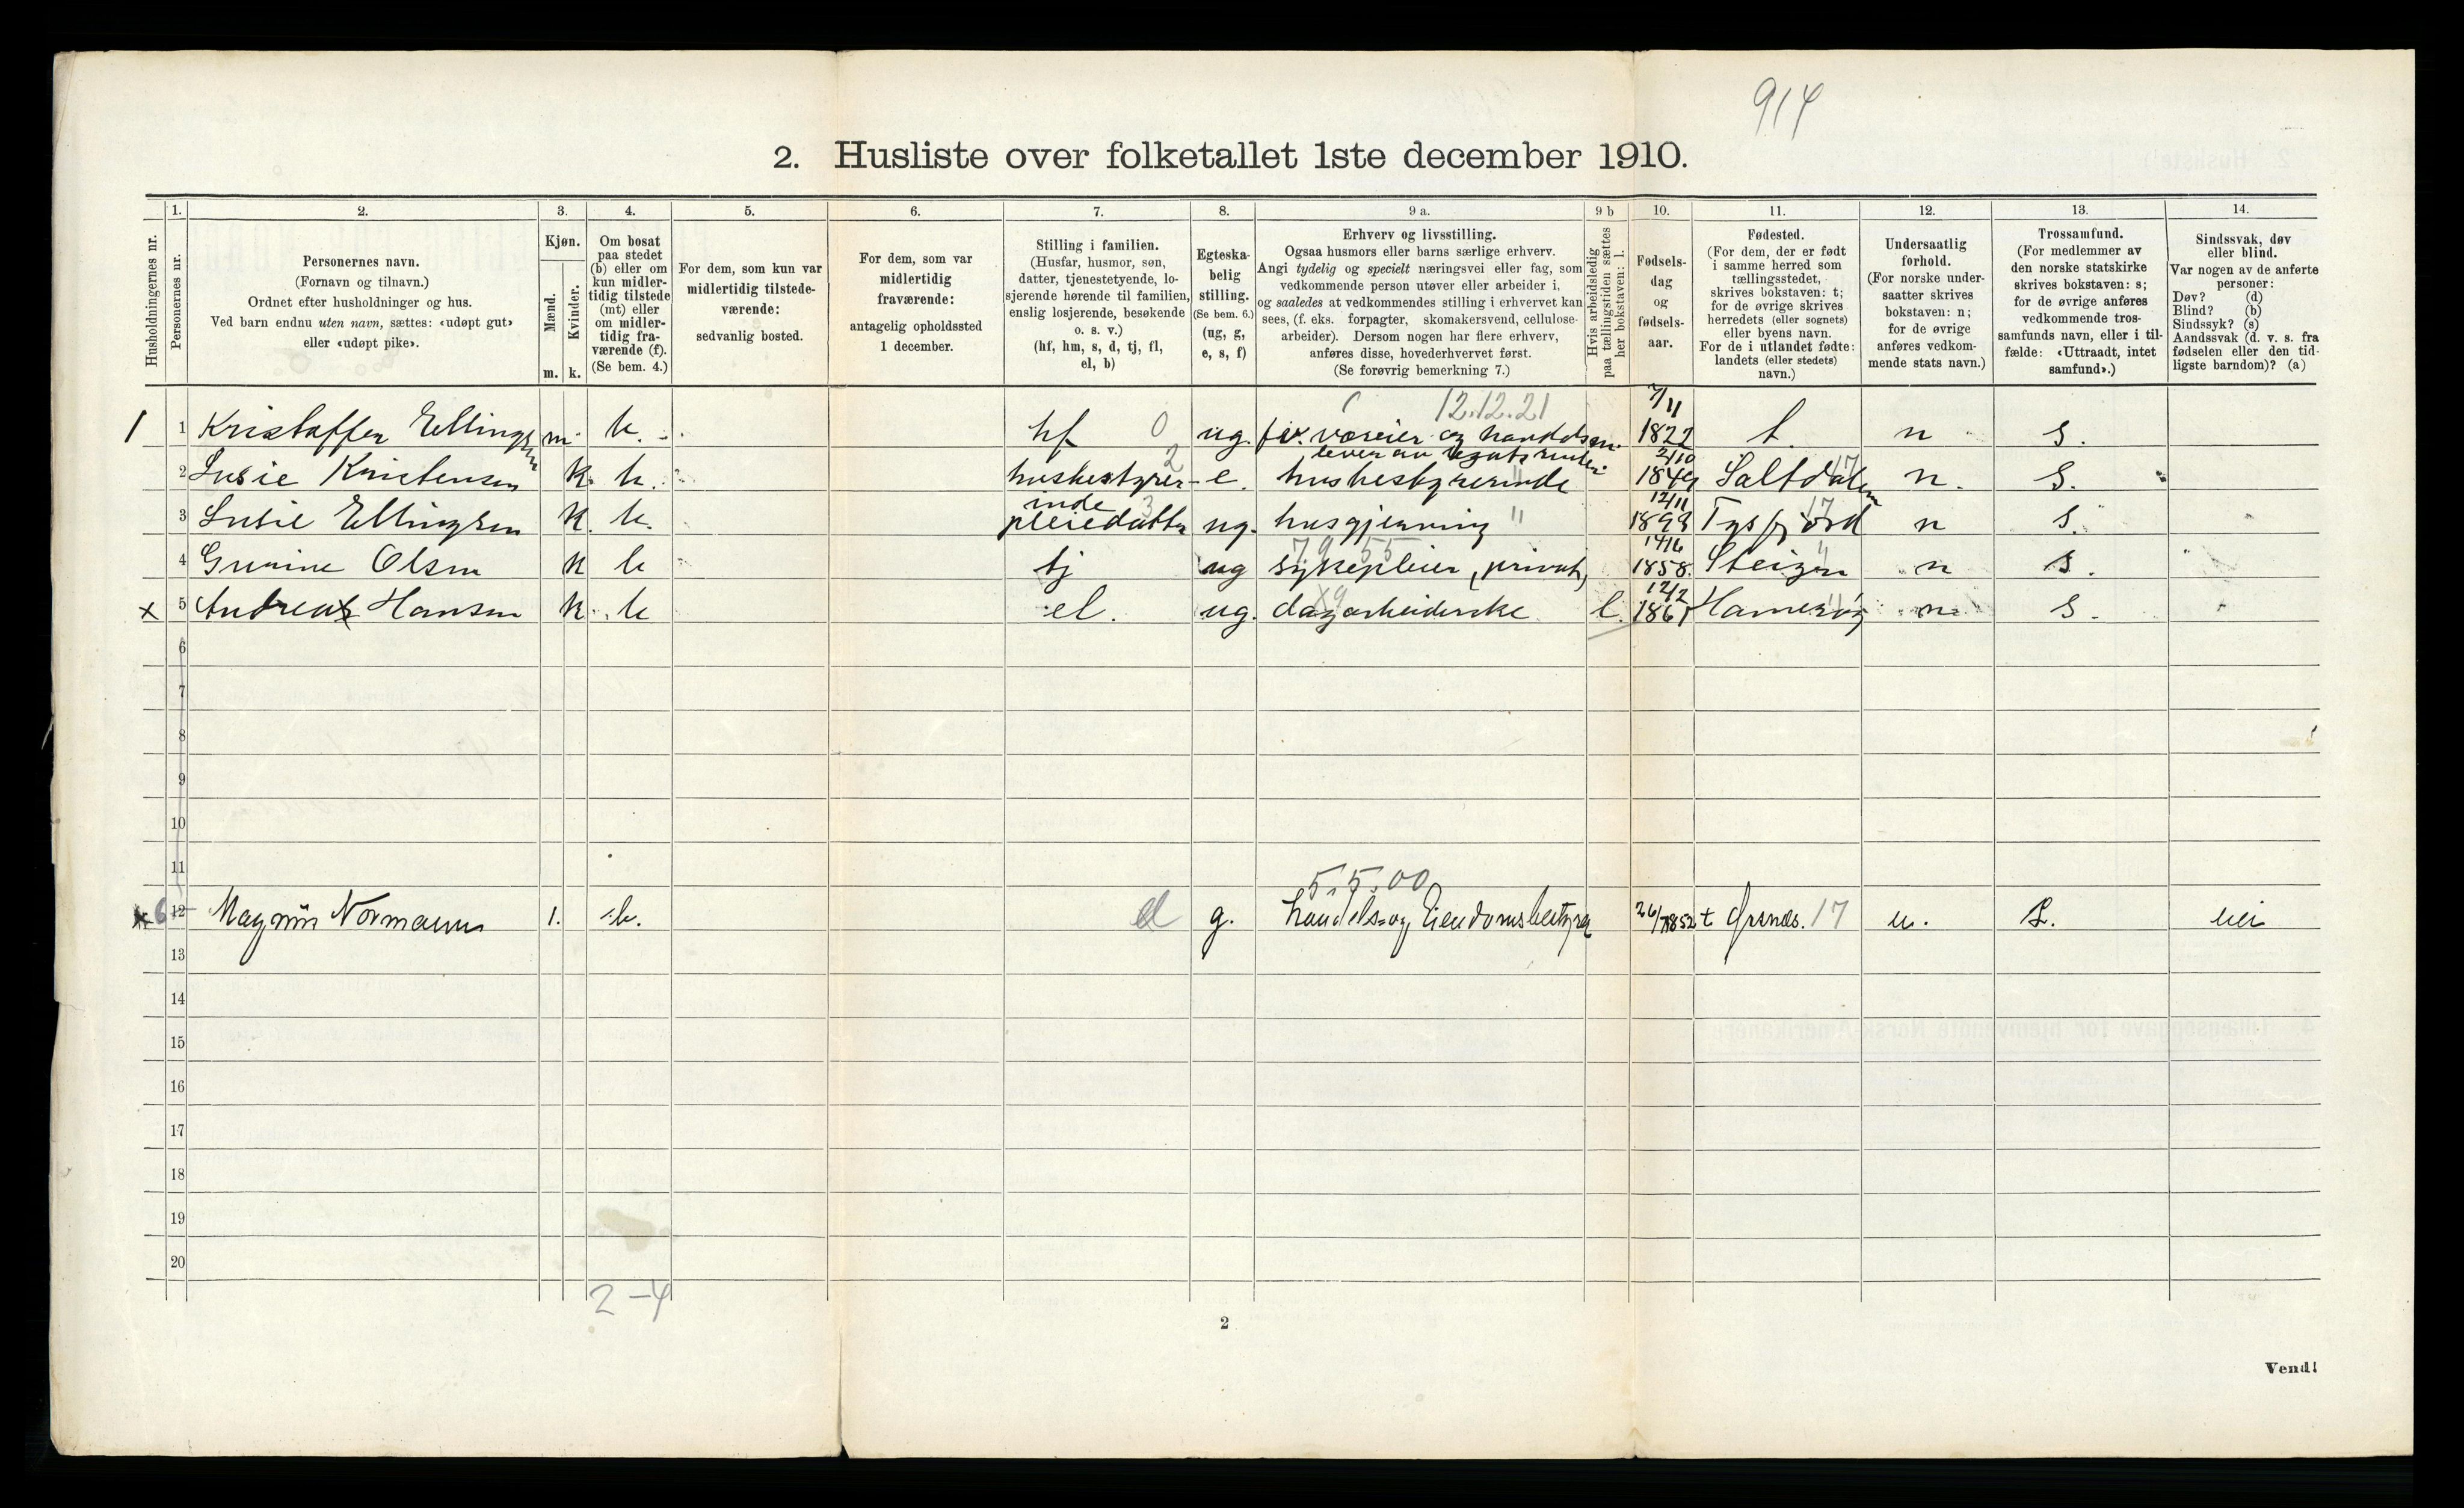 914
2. Husliste over folketallet 1ste december 1910.
Husholdningernes nr.
1.
Personernes nr.
2.
Personernes navn.
(Fornavn og tilnavn.)
Ordnet efter husholdninger og hus.
Ved barn endnu uten navn, sættes: «udøpt gut»
eller «udøpt pike».
3.
Kjøn.
Mænd.
Kvinder.
m. k.
4.
Om bosat
paa stedet
(b) eller om
kun midler-
tidig tilstede
(mt) eller
om midler-
tidig fra-
værende (f).
(Se bem. 4.)
5.
For dem, som kun var
midlertidig tilstede-
værende:
sedvanlig bosted.
6.
For dem, som var
midlertidig
fraværende:
antagelig opholdssted
1 december.
7.
Stilling i familien.
(Husfar, husmor, søn,
datter, tjenestetyende, lo-
sjerende hørende til familien,
enslig losjerende, besøkende
o. s. v.)
(hf, hm, s, d, tj, fl,
el, b)
8.
Egteska-
belig
stilling.
(Se bem. 6.)
(ug, g,
e, s, f)
9 a.
Erhverv og livsstilling.
Ogsaa husmors eller barns særlige erhverv.
Angi tydelig og specielt næringsvei eller fag, som
vedkommende person utøver eller arbeider i,
og saaledes at vedkommendes stilling i erhvervet kan
sees, (f. eks. forpagter, skomakersvend, cellulose-
arbeider). Dersom nogen har flere erhverv,
anføres disse, hovederhvervet først.
(Se forøvrig bemerkning 7.)
9 b
Hvis arbeidsledig
paa tællingstiden sættes
her bokstaven: l.
10.
Fødsels-
dag
og
fødsels-
aar.
11.
Fødested.
(For dem, der er født
i samme herred som
tællingsstedet,
skrives bokstaven: t;
for de øvrige skrives
herredets (eller sognets)
eller byens navn.
For de i utlandet fødte:
landets (eller stedets)
navn.)
12.
Undersaatlig
forhold.
(For norske under-
saatter skrives
bokstaven: n;
for de øvrige
anføres vedkom-
mende stats navn.)
13.
Trossamfund.
(For medlemmer av
den norske statskirke
skrives bokstaven: s;
for de øvrige anføres
vedkommende tros-
samfunds navn, eller i til-
fælde: «Uttraadt, intet
samfund».)
14.
Sindssvak, døv
eller blind.
Var nogen av de anførte
personer:
Døv? (d)
Blind? (b)
Sindssyk? (s)
Aandssvak (d. v. s. fra
fødselen eller den tid-
ligste barndom)? (a)
12.12.21 7/11
1 1 Kristoffer Ellingsen m. b. hf 0 ug. fv. væreier og handelsm. 1822 t. n s.
lever av 2/10
2 Lusie Kristensen k. b. husbestyrer- 2 e. husbestyrerinde " 1849 Saltdalen 17 n. s.
inde 12/11
3 Lusie Ellingsen k. b. pleiedatter 3 ug. husgjerning " 1898 Tysfjord 17 n s.
79 55 14/6
4 Gunine Olsen k b tj ug sykepleier (privat) 1858. Steigen " n s.
12/2
x 5 Andrea Hansen k. b el. ug. dagarbeiderske l. 1861 Hamerøy " n. s.
6
7
8
9
10
11
5.5.00
x 6 12 Magnus Normann 1. b. el g. handels- og Eiendomsbestyrer 26/7 1852 t Grsnæs. 17 n. S. nei
13
14
15
16
17
18
19
20
2 – 4
2
Vend!